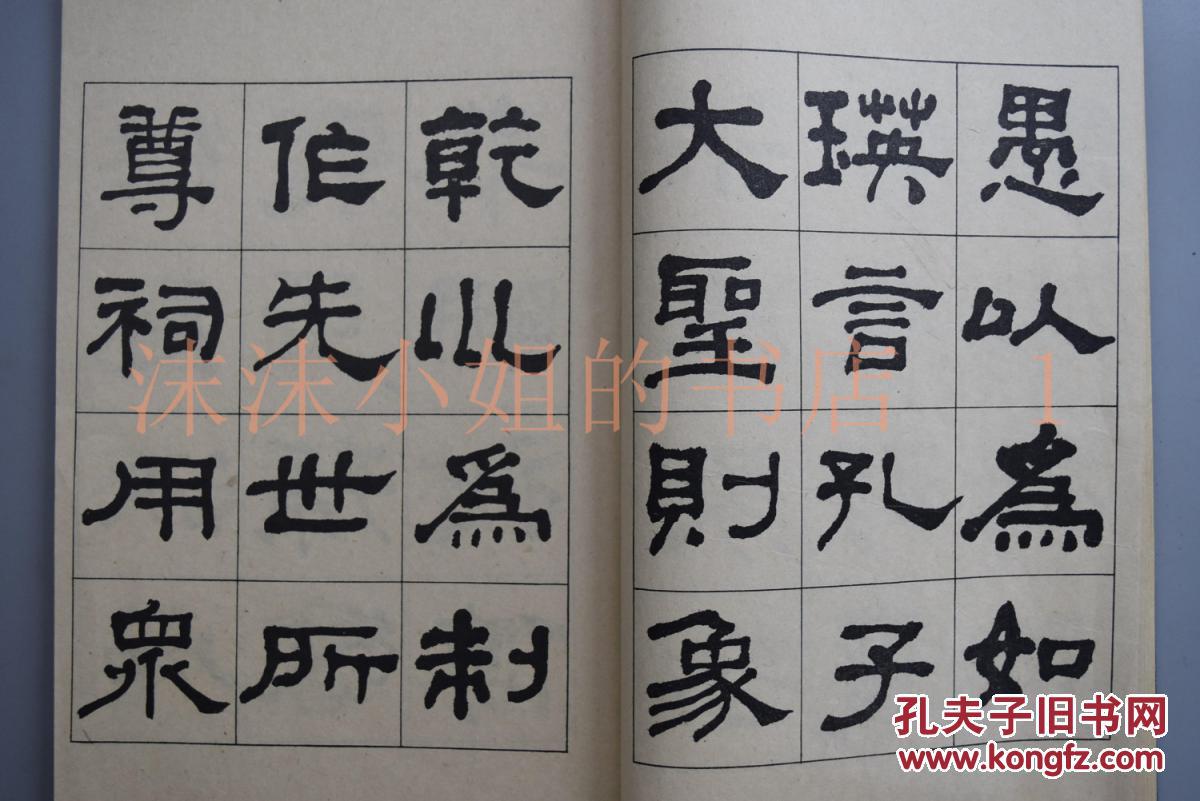 愚以為如
瑛言孔子
大聖則象
乾巛爲制
作先世所
尊祠用眾
沫沫小姐的书店 1
孔夫子旧书网
www.kongfz.com